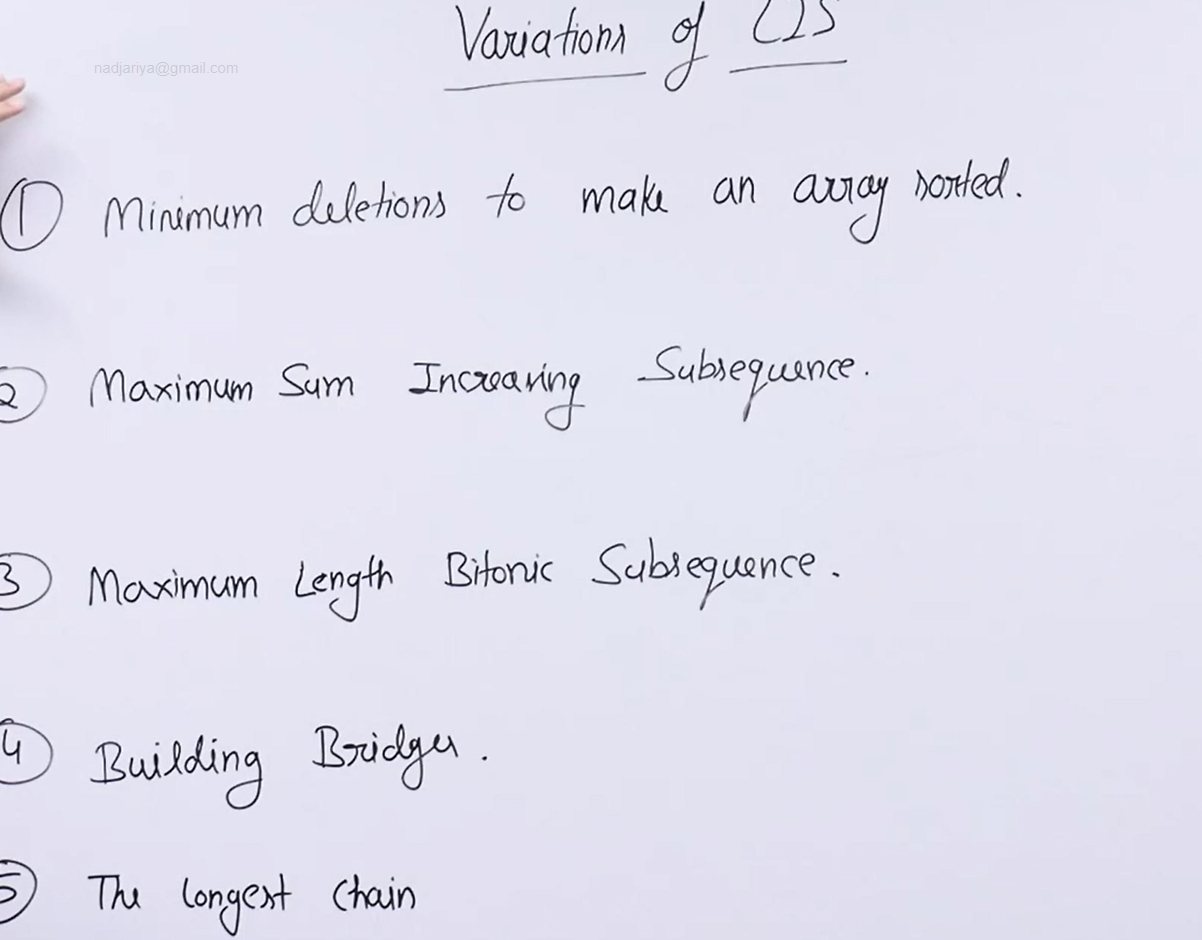 Variations of LIS
nadjariya@gmail.com
1 Minimum deletions to make an array sorted.
2 Maximum Sum Increasing Subsequence.
3 Maximum Length Bitonic Subsequence.
4 Building Bridges.
5 The Longest Chain